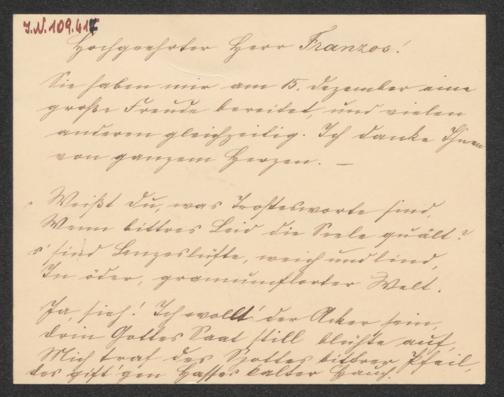 J.N. 109.417
Hochgeehrter Herr Franzos!
Sie haben mir am 15. Dezember eine
große Freude bereitet, und vielen
anderen gleichzeitig. Ich danke Ihnen
von ganzem Herzen. —
Weißt du, was Trostesworte sind,
Wenn bittres Leid die Seele quält?
's sind Lenzeslüfte, weich und lind,
In öder, gramumflorter Welt.
Ja, sieh! Ich wollt' der Acker sein,
drin Gottes Saat still blühte auf,
Mich traf des Spottes bittrer Pfeil,
des gift'gen Hasses kalter Hauch.